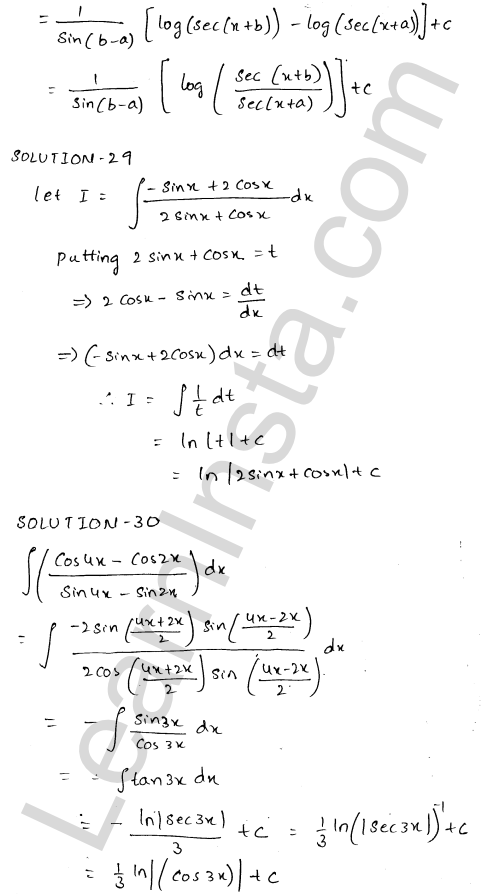 = 1/Sin(b-a) [log(sec(x+b)) - log(sec(x+a))] + c
= 1/Sin(b-a) [log(sec(x+b)/sec(x+a))] + c
SOLUTION-29
let I = ∫ (-sinx + 2cosx)/(2sinx + cosx) dx
Putting 2sinx + cosx = t
⇒ 2cosx - sinx = dt/dx
⇒ (-sinx + 2cosx)dx = dt
∴ I = ∫ 1/t dt
= ln|t| + c
= ln|2sinx + cosx| + c
SOLUTION-30
∫ ((cos4x - cos2x)/(sin4x - sin2x)) dx
= ∫ (-2sin((4x+2x)/2) sin((4x-2x)/2))/(2cos((4x+2x)/2) sin((4x-2x)/2)) dx
= -∫ sin3x/cos3x dx
= - ∫tan3x dx
= - ln|sec3x|/3 + c = 1/3 ln(|sec3x|)^-1 + c
= 1/3 ln|(cos3x)| + c
LearnInsta.com